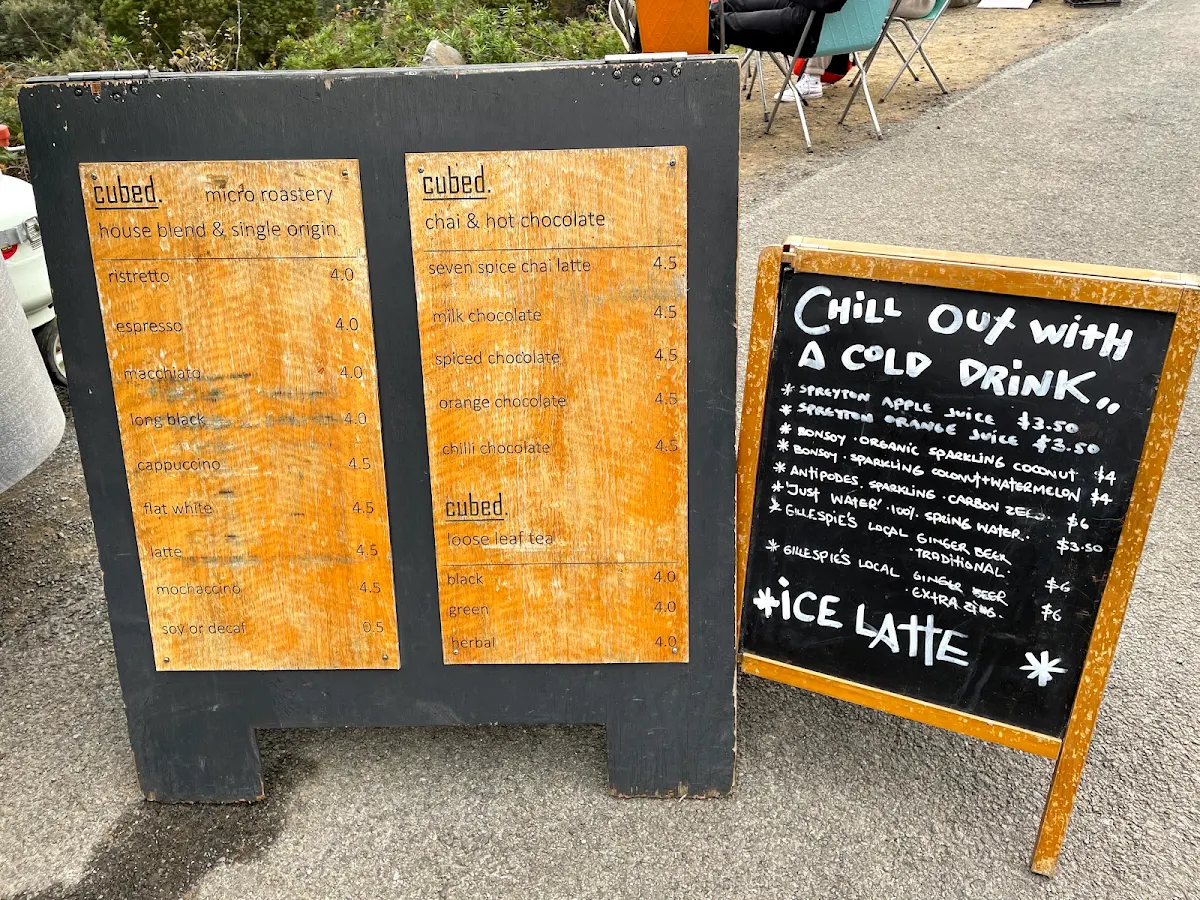 cubed. micro roastery
house blend & single origin
ristretto 4.0
espresso 4.0
macchiato 4.0
long black 4.0
cappuccino 4.5
flat white 4.5
latte 4.5
mochaccino 4.5
soy or decaf 0.5
cubed.
chai & hot chocolate
seven spice chai latte 4.5
milk chocolate 4.5
spiced chocolate 4.5
orange chocolate 4.5
chilli chocolate 4.5
cubed.
loose leaf tea
black 4.0
green 4.0
herbal 4.0
CHiLL OUT WITH
A COLD DRINK..
* SPREYTON APPLE JUICE $3.50
* SPREYTON ORANGE JUICE $3.50
* BONSOY · ORGANIC SPARKLING COCONUT $4
* BONSOY · SPARKLING COCONUT+WATERMELON $4
* ANTIPODES · SPARKLING · CARBON ZERO · $6
* 'JUST WATER' · 100% SPRING WATER · $3.50
* GILLESPIE'S LOCAL GINGER BEER
· TRADITIONAL · $6
* GILLESPIE'S LOCAL GINGER BEER
· EXTRA ZING · $6
*iCE LATTE *